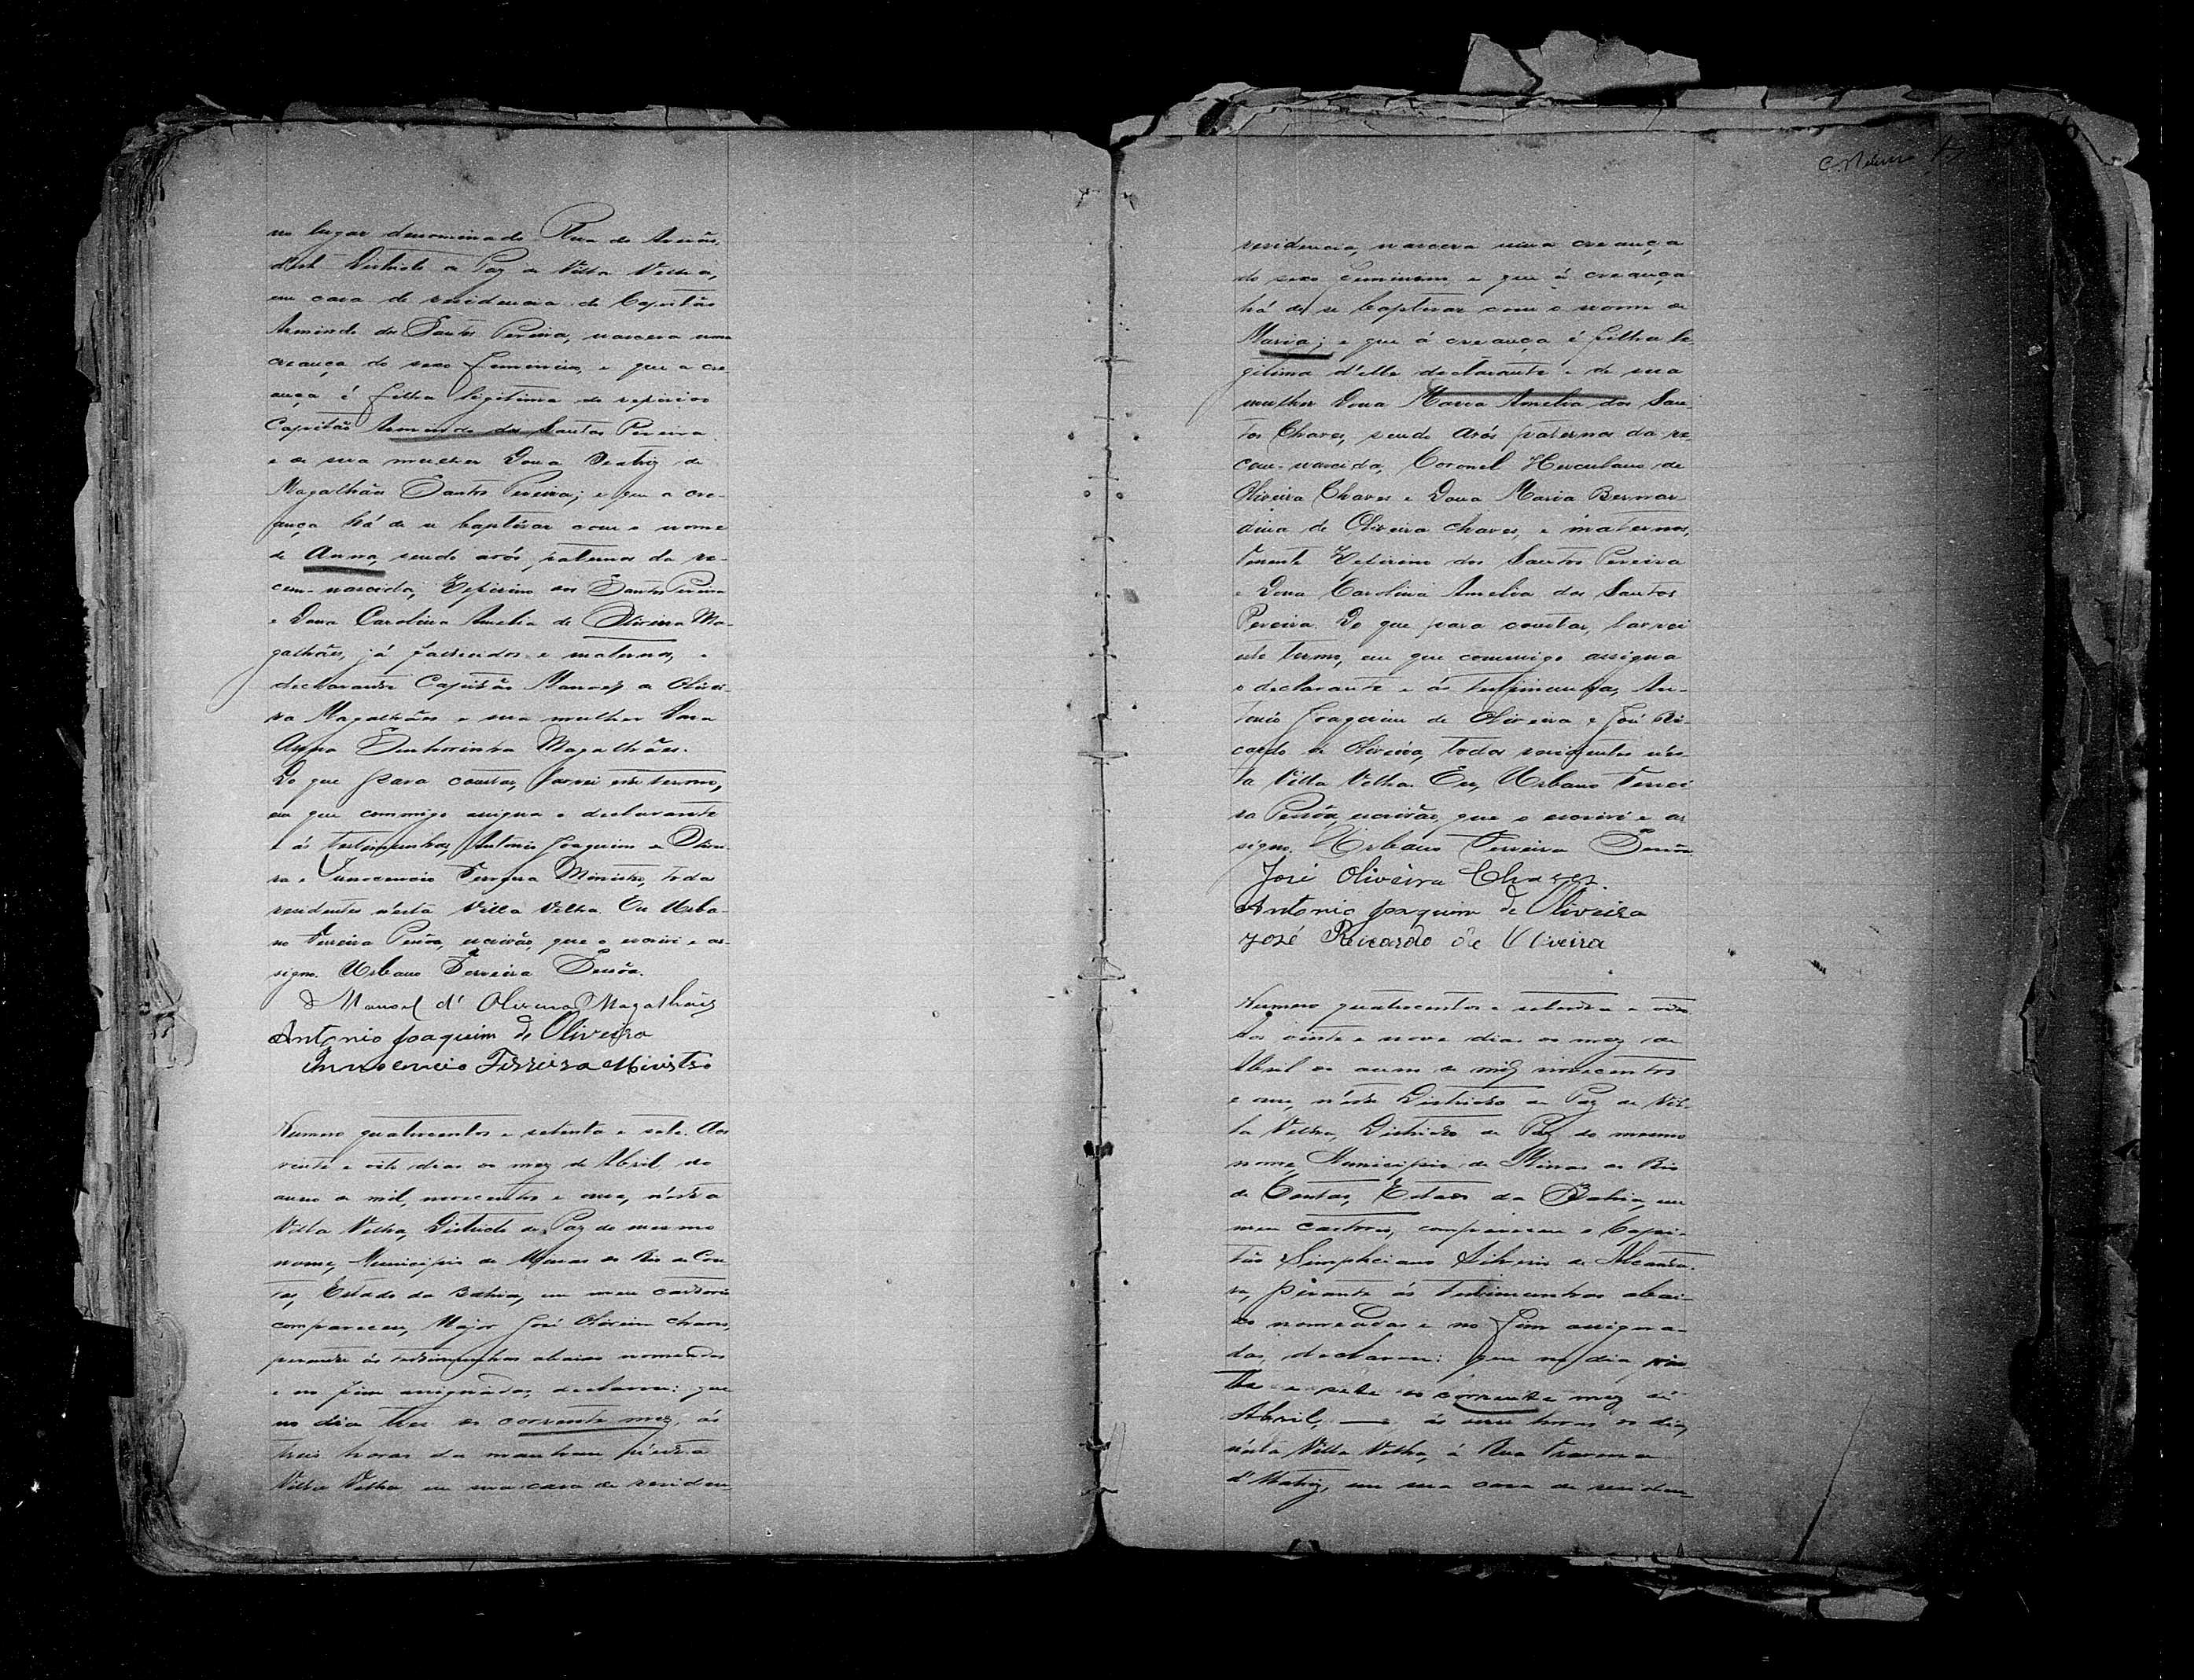 no lugar denominado Rua do Areião,
d'este Districto de Paz de Villa Velha,
em casa de residencia do Capitão
Armindo dos Santos Pereira, nascera uma
creança do sexo feminino, e que a cre-
ança é filha legitima do referido
Capitão Armindo dos Santos Pereira
e de sua mulher Dona Beatriz de
Magalhães Santos Pereira; e que a cre-
ança há de se baptisar com o nome
de Anna, sendo avós, paternos da re-
cem-nascida, Zeferino dos Santos Pereira
e Dona Carolina Amelia de Oliveira Ma-
galhães, já fallecidos e maternos, o
declarante Capitão Manoel de Olivei-
ra Magalhães e sua mulher Dona
Anna Senhorinha Magalhães.
Do que para constar, lavrei este termo,
em que commigo assigna o declarante
e ás testimunhas, Antonio Joaquim de Olivei-
ra e Innocencio Ferreira Ministro, todos
residentes n'esta Villa Velha. Eu Urba-
no Ferreira Pessôa, escrivão, que o escrivi e as-
signo. Urbano Ferreira Pessôa.
Manoel d' Oliveira Magalhães
Antonio Joaquim de Oliveira
Innocencio Ferreira Ministro
Numero quatrocentos e setenta e sete. Aos
vinte e oito dias do mez de Abril do
anno de mil, novecentos e onze, n'esta
Villa Velha, Districto de Paz do mesmo
nome, Municipio de Minas do Rio de Con-
tas, Estado da Bahia, em meu cartorio
compareceu, Major José Oliveira Chaves,
perante ás testimunhas abaixo nomeadas
e no fim assignadas, declarou: que
no dia tres do corrente mez, ás
treis horas da manhan, n'esta
Villa Velha em sua casa de residen
residencia, nascera uma creança
do sexo feminino e que á creança
há de se baptisar com o nome de
Maria; e que á creança é filha le-
gitima d'elle declarante e de sua
mulher Dona Maria Amelia dos San-
tos Chaves, sendo avós paternos da re-
cem-nascida, Coronel Herculano de
Oliveira Chaves e Dona Maria Bernar-
dina de Oliveira Chaves, e maternos,
Tenente Zeferino dos Santos Pereira
e Dona Carolina Amelia dos Santos
Pereira. Do que para constar, lavrei
este termo, em que commigo assigna
o declarante e ás testimunhas, An-
tonio Joaquim de Oliveira e José Ri-
cardo de Oliveira, todos residentes n'es-
ta Villa Velha. Eu, Urbano Ferrei-
ra Pessôa, escrivão, que o escrivi e as-
signo. Urbano Ferreira Pessôa
José Oliveira Chaves.
Antonio Joaquim de Oliveira
José Ricardo de Oliveira
Numero quatrocentos e setenta e oito
Aos vinte e nove dias do mez de
Abril do anno de mil novecentos
e onze, n'este Districto de Paz de Vil-
la Velha, Districto de Paz do mesmo
nome, Municipio de Minas do Rio
de Contas, Estado da Bahia, em
meu cartorio, compareceu o Capi-
tão Simpliciano Silverio de Alcanta-
ra, perante ás testimunhas abai-
xo nomeadas e no fim assigna-
das, declarou: que no dia vin-
te e sete do corrente mez de
Abril, ás horas do dia,
n'esta Villa Velha, á Rua Travessa
d' Matriz, em sua casa de residen-